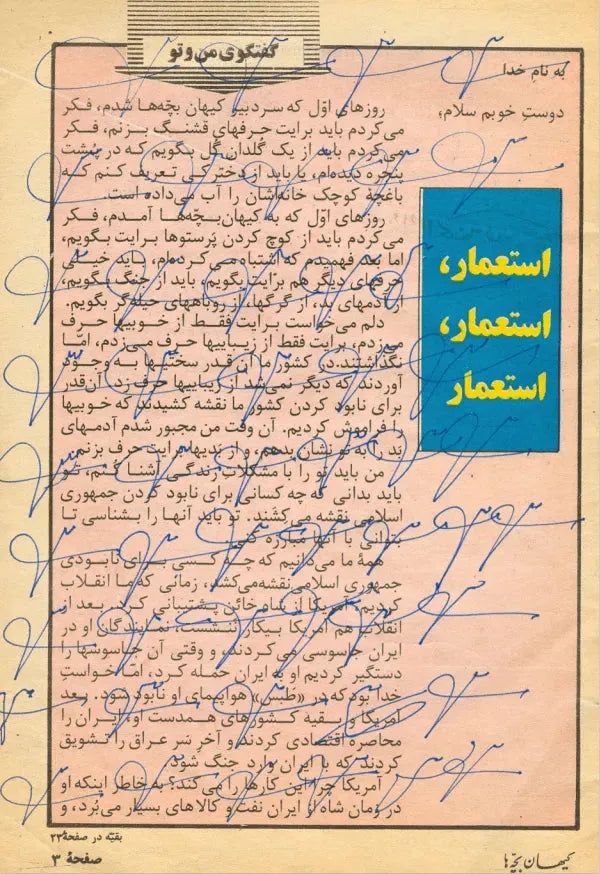 گفتگوی من و تو
به نام خدا
دوستِ خوبم سلام؛
استعمار،
استعمار،
استعمار
روزهای اوّل که سردبیر کیهان بچّه‌ها شدم، فکر
می‌کردم باید برایت حرفهای قشنگ بزنم، فکر
می‌کردم باید از یک گلدان گل بگویم که در پشت
پنجره دیده‌ام، یا باید از دخترکی تعریف کنم که
باغچهٔ کوچک خانه‌اشان را آب می‌داده است.
روزهای اوّل که به کیهان‌بچّه‌ها آمدم، فکر
می‌کردم باید از کوچ کردن پَرستوها برایت بگویم،
اما بعد فهمیدم که اشتباه می‌کرده‌ام، باید خیلی
حرفهای دیگر هم برایت بگویم، باید از جنگ بگویم،
از آدمهای بد، از گرگها، از روباههای حیله‌گر بگویم.
دلم می‌خواست برایت فقط از خوبیها حرف
می‌زدم، برایت فقط از زیباییها حرف می‌زدم، امّا
نگذاشتند. در کشور ما آن قدر سختیها به وجود
آوردند که دیگر نمی‌شد از زیباییها حرف زد. آن‌قدر
برای نابود کردن کشور ما نقشه کشیدند که خوبیها
را فراموش کردیم. آن وقت من مجبور شدم آدمهای
بَد را به تو نشان بدهم، و از بَدیها برایت حرف بزنم.
من باید تو را با مشکلاتِ زندگی آشنا کنم، تو
باید بدانی که چه کسانی برای نابود کردن جمهوری
اسلامی نقشه می‌کشند. تو باید آنها را بشناسی تا
بتوانی با آنها مبارزه کنی.
همهٔ ما می‌دانیم که چه کسی برای نابودی
جمهوری اسلامی نقشه‌می‌کشد، زمانی که ما انقلاب
کردیم، آمریکا از شاه خائن پشتیبانی کرد. بعد از
انقلاب هم آمریکا بیکار ننشست، نمایندگان او در
ایران جاسوسی می‌کردند، و وقتی آن جاسوسها را
دستگیر کردیم او به ایران حمله کرد، امّا خواستِ
خدا بود که در «طَبَس» هواپیمای او نابود شود. بعد
آمریکا و بقیه کشورهای همدست او، ایران را
محاصره اقتصادی کردند و آخرِ سَر عراق را تشویق
کردند که با ایران وارد جنگ شود.
آمریکا چرا این کارها را می‌کند؟ به خاطر اینکه او
در زمان شاه از ایران نفت و کالاهای بسیار می‌بُرد، و
بقیّه در صفحهٔ ۲۳
صفحهٔ ۳
کیهان بچّه‌ها